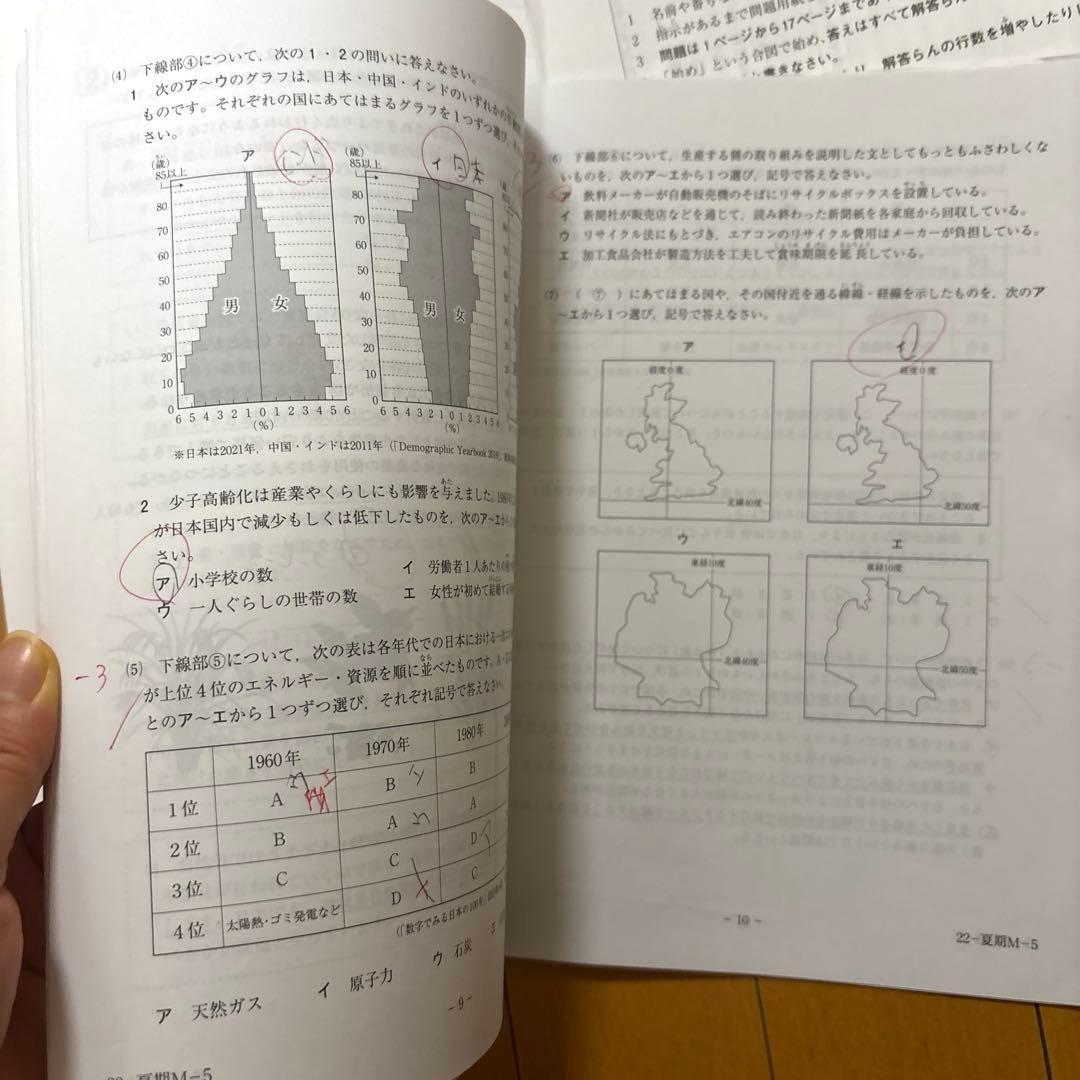 (4) 下線部④について,次の1・2の問いに答えなさい。
1 次のア〜ウのグラフは,日本・中国・インドのいずれかの
ものです。それぞれの国にあてはまるグラフを1つずつ選び,
さい。
ア インド
イ 日本
(歳)
85以上
80
70
60
50
40
30
20
10
0
男 女
6 5 4 3 2 1 0 1 2 3 4 5 6
(%)
(歳)
85以上
80
70
60
50
40
30
20
10
0
男 女
6 5 4 3 2 1 0 1 2 3 4 5 6
(%)
※日本は2021年,中国・インドは2011年(「Demographic Yearbook
2 少子高齢化は産業やくらしにも影響を与えました。
が日本国内で減少もしくは低下したものを,次のア〜エから
さい。
ア 小学校の数
イ 労働者1人あたりの
ウ 一人ぐらしの世帯の数
エ 女性が初めて結婚する
-3
(5) 下線部⑤について,次の表は各年代での日本における一
が上位4位のエネルギー・資源を順に並べたものです。A
とのア〜エから1つずつ選び,それぞれ記号で答えなさい。
1960年 1970年 1980年
1位 A B B
2位 B A A
3位 C C D
4位 太陽熱・ゴミ発電など D C
(「数字でみる日本の100年」
ア 天然ガス イ 原子力 ウ 石炭 エ
-9-
22-夏期M-5
1 名前や番号
2 指示があるまで問題用紙
3 問題は1ページから17ページまであ
「始め」という合図で始め,答えはすべて解答らん
解答らんの行数を増やしたり
(6) 下線部⑥について,生産する側の取り組みを説明した文としてもっともふさわしくな
いものを,次のア〜エから1つ選び,記号で答えなさい。
ア 飲料メーカーが自動販売機のそばにリサイクルボックスを設置している。
イ 新聞社が販売店などを通じて,読み終わった新聞紙を各家庭から回収している。
ウ リサイクル法にもとづき,エアコンのリサイクル費用はメーカーが負担している。
エ 加工食品会社が製造方法を工夫して賞味期限を延長している。
(7) ( ⑦ )にあてはまる国や,その国付近を通る緯線・経線を示したものを,次のア
〜エから1つ選び,記号で答えなさい。
ア
経度0度
北緯40度
イ
経度0度
北緯50度
ウ
東経10度
北緯40度
エ
東経10度
北緯50度
-10-
22-夏期M-5